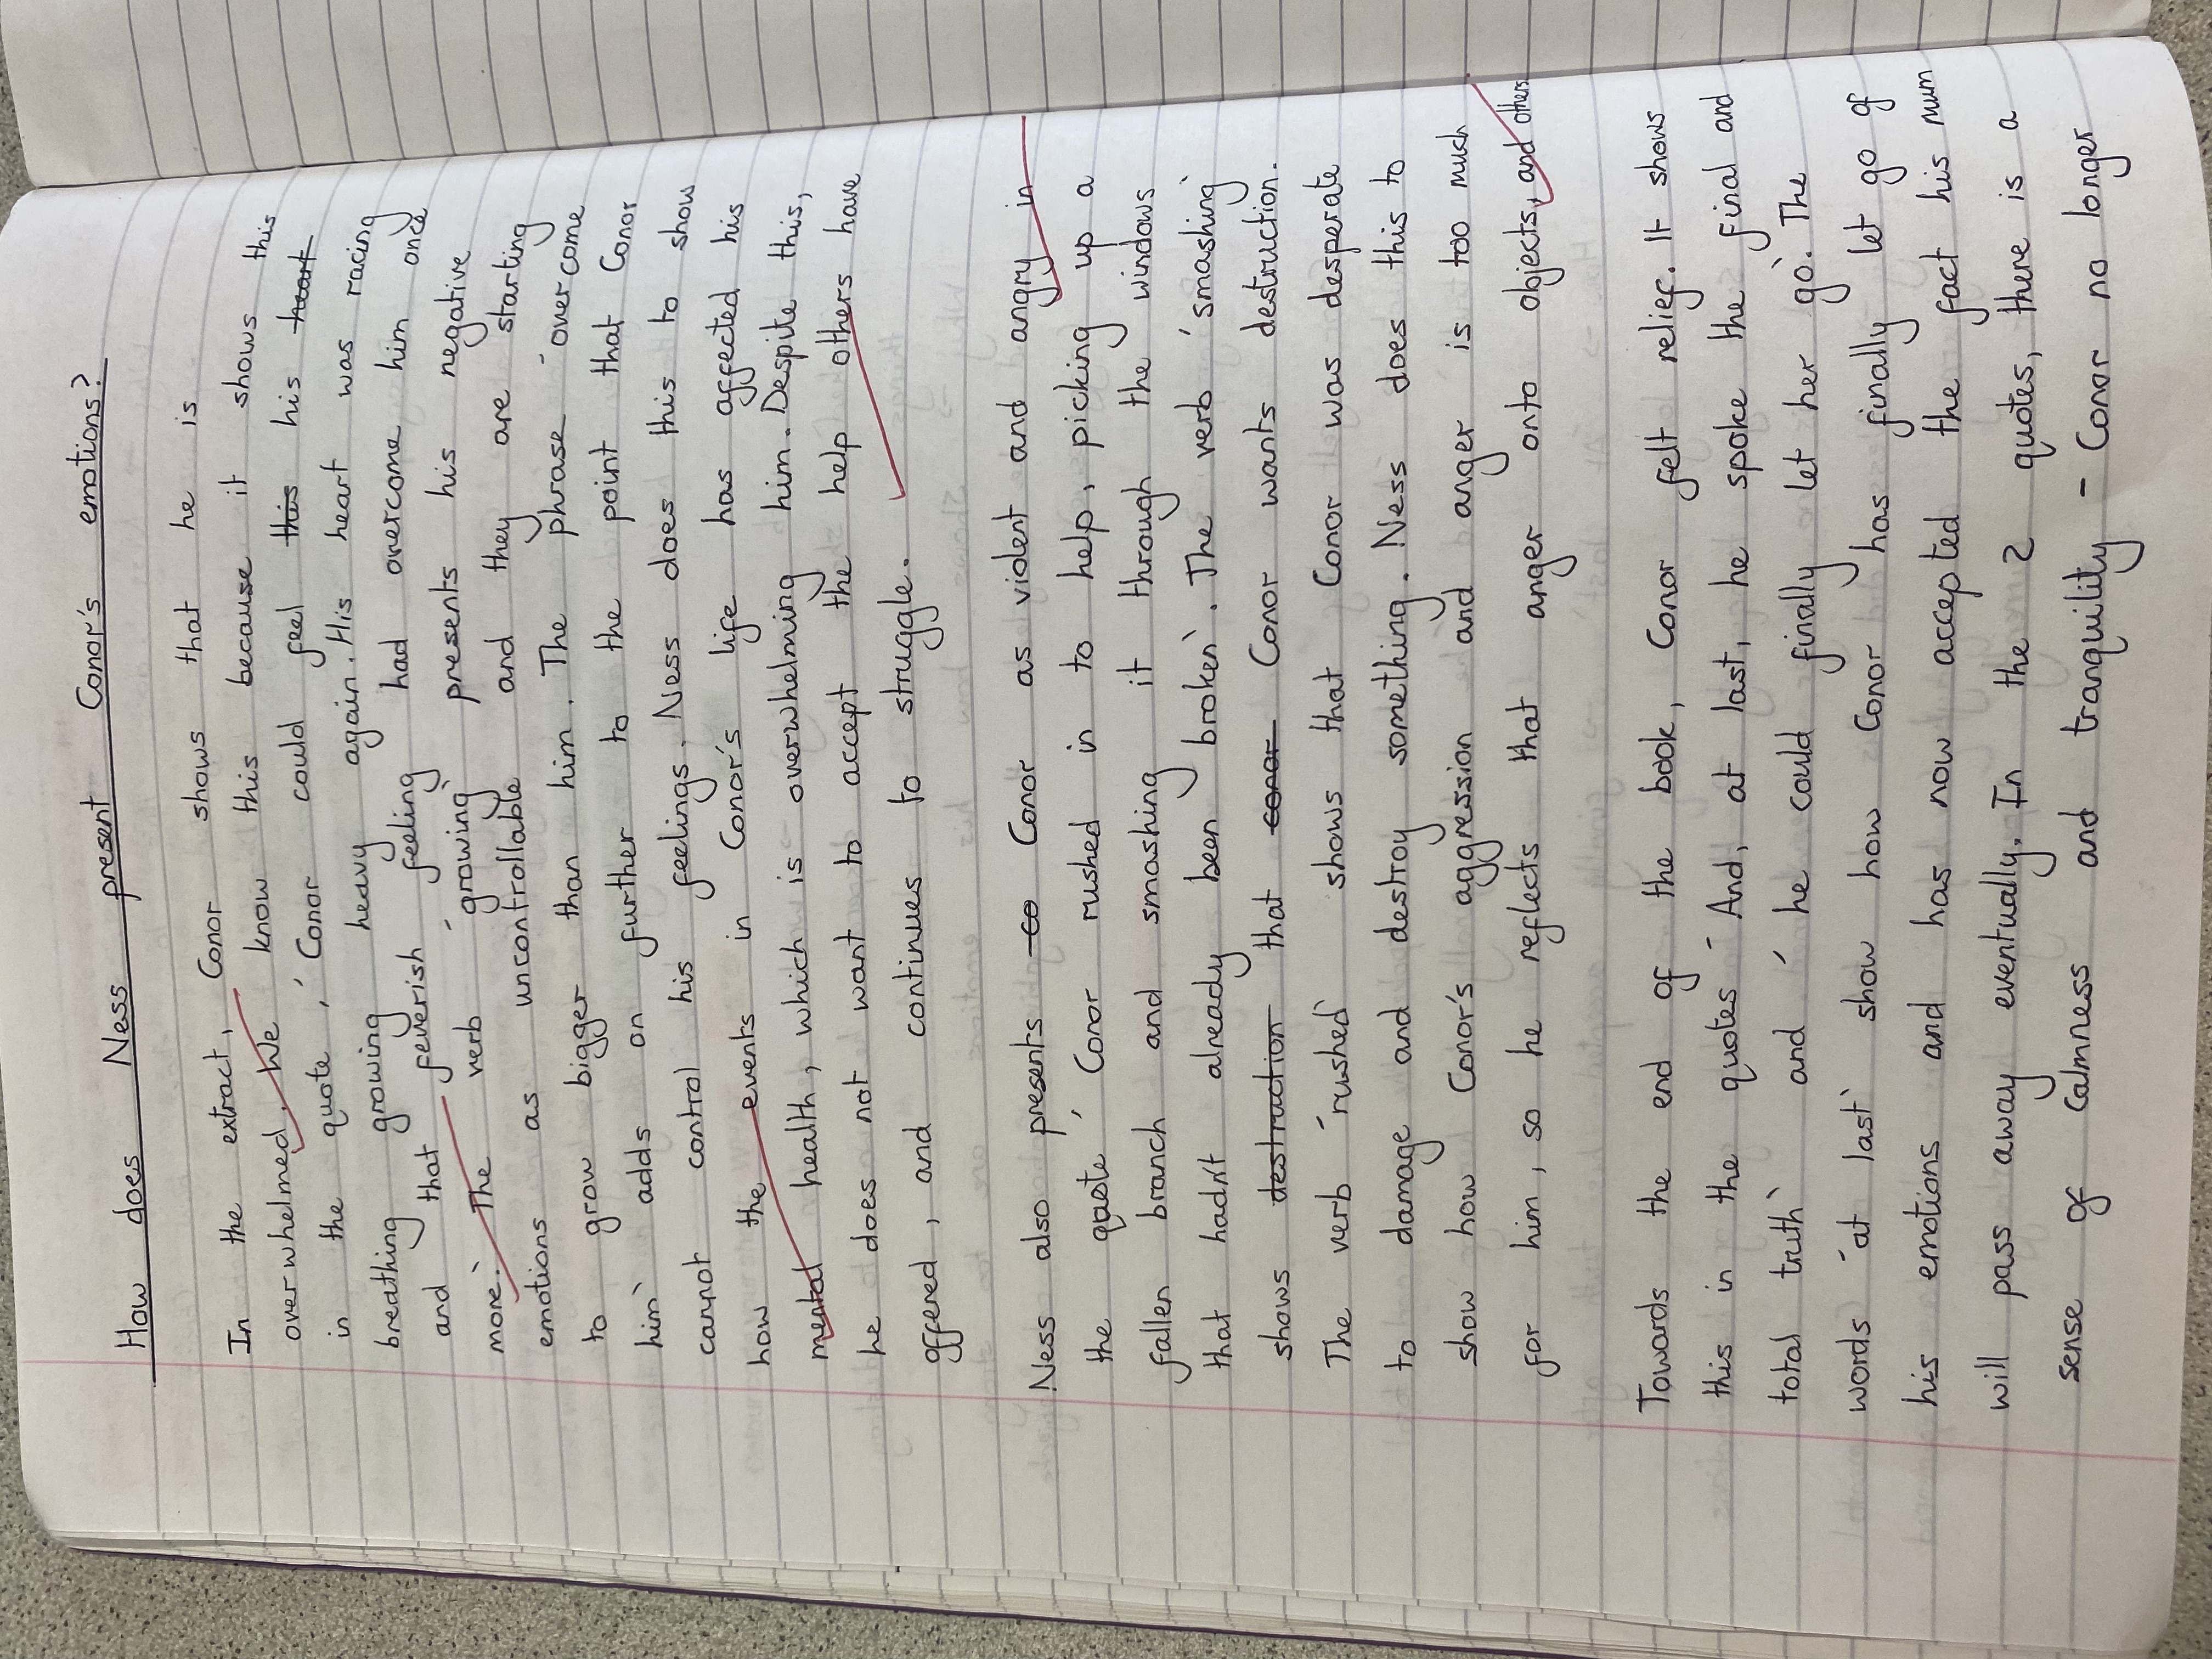 How does Ness present Conor's emotions?
In the extract, Conor shows that he is
overwhelmed. We know this because it shows this
in the quote, 'Conor could feel this his heart
breathing growing heavy again. His heart was racing
and that feverish feeling had overcome him once
more.' The verb 'growing' presents his negative
emotions as uncontrollable and they are starting
to grow bigger than him. The phrase 'overcome
him' adds on further to the point that Conor
cannot control his feelings. Ness does this to show
how the events in Conor's life has affected his
mental health, which is overwhelming him. Despite this,
he does not want to accept the help others have
offered, and continues to struggle.
Ness also presents co Conor as violent and angry in
the quote 'Conor rushed in to help, picking up a
fallen branch and smashing it through the windows
that hadn't already been broken'. The verb 'smashing'
shows destruction that conor Conor wants destruction.
The verb 'rushed' shows that Conor was desperate
to damage and destroy something. Ness does this to
show how Conor's aggression and anger is too much
for him, so he reflects that anger onto objects, and others.
Towards the end of the book, Conor felt relief. It shows
this in the quotes 'And, at last, he spoke the final and
total truth' and 'he could finally let her go'. The
words 'at last' show how Conor has finally let go of
his emotions and has now accepted the fact his mum
will pass away eventually. In the 2 quotes, there is a
sense of calmness and tranquility - Conor no longer